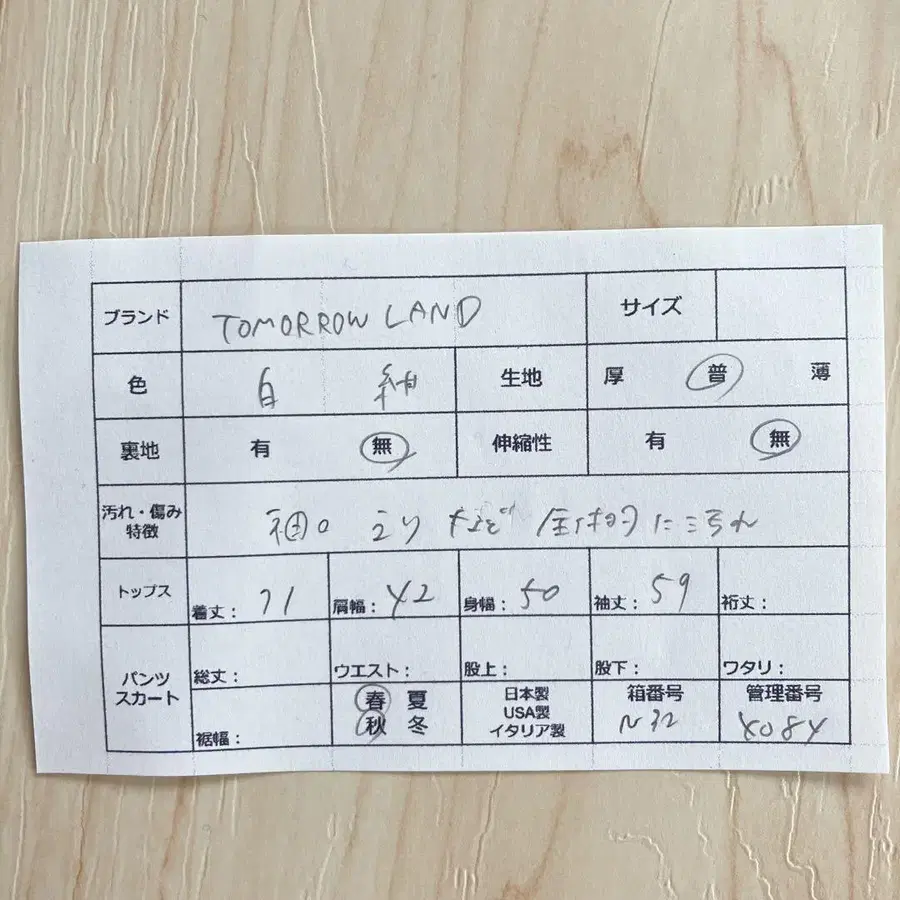 ブランド TOMORROW LAND サイズ
色 白 紺 生地 厚 普 薄
裏地 有 無 伸縮性 有 無
汚れ・傷み 特徴 袖口 えり など 全体的に汚れ
トップス 着丈: 71 肩幅: 42 身幅: 50 袖丈: 59 裄丈:
パンツ スカート 総丈: ウエスト: 股上: 股下: ワタリ:
裾幅: 春 夏 秋 冬 日本製 USA製 イタリア製 箱番号 N32 管理番号 4084